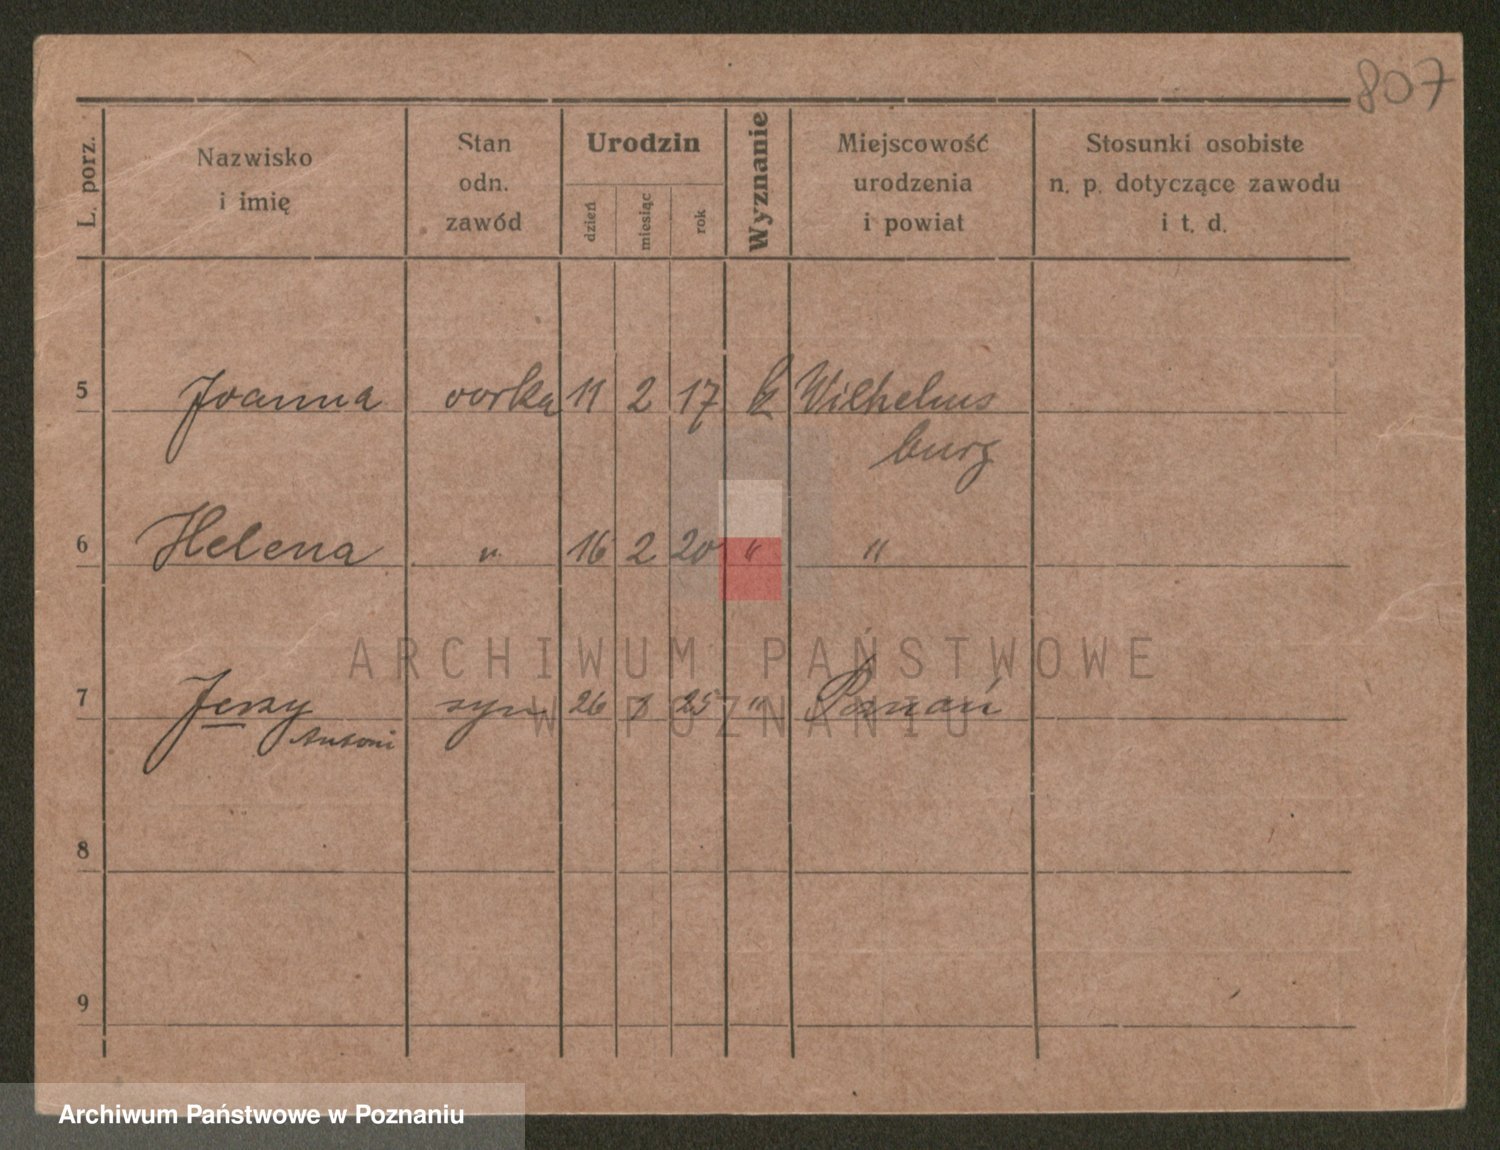 807
L. porz.
Nazwisko
i imię
Stan
odn.
zawód
Urodzin
dzień
miesiąc
rok
Wyznanie
Miejscowość
urodzenia
i powiat
Stosunki osobiste
n. p. dotyczące zawodu
i t. d.
5 Joanna 11 2 17 k Wilhelms
burg
6 Helena " 16 2 20 " "
7 Jerzy syn 26 25 " Poznań
Antoni
8
9
ARCHIWUM PAŃSTWOWE
W POZNANIU
Archiwum Państwowe w Poznaniu